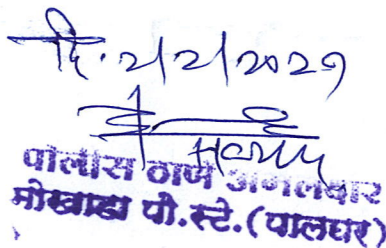 दि. २/२/२०२१
पोलीस ठाणे अंमलदार
मोखाडा पो.स्टे.(पालघर)